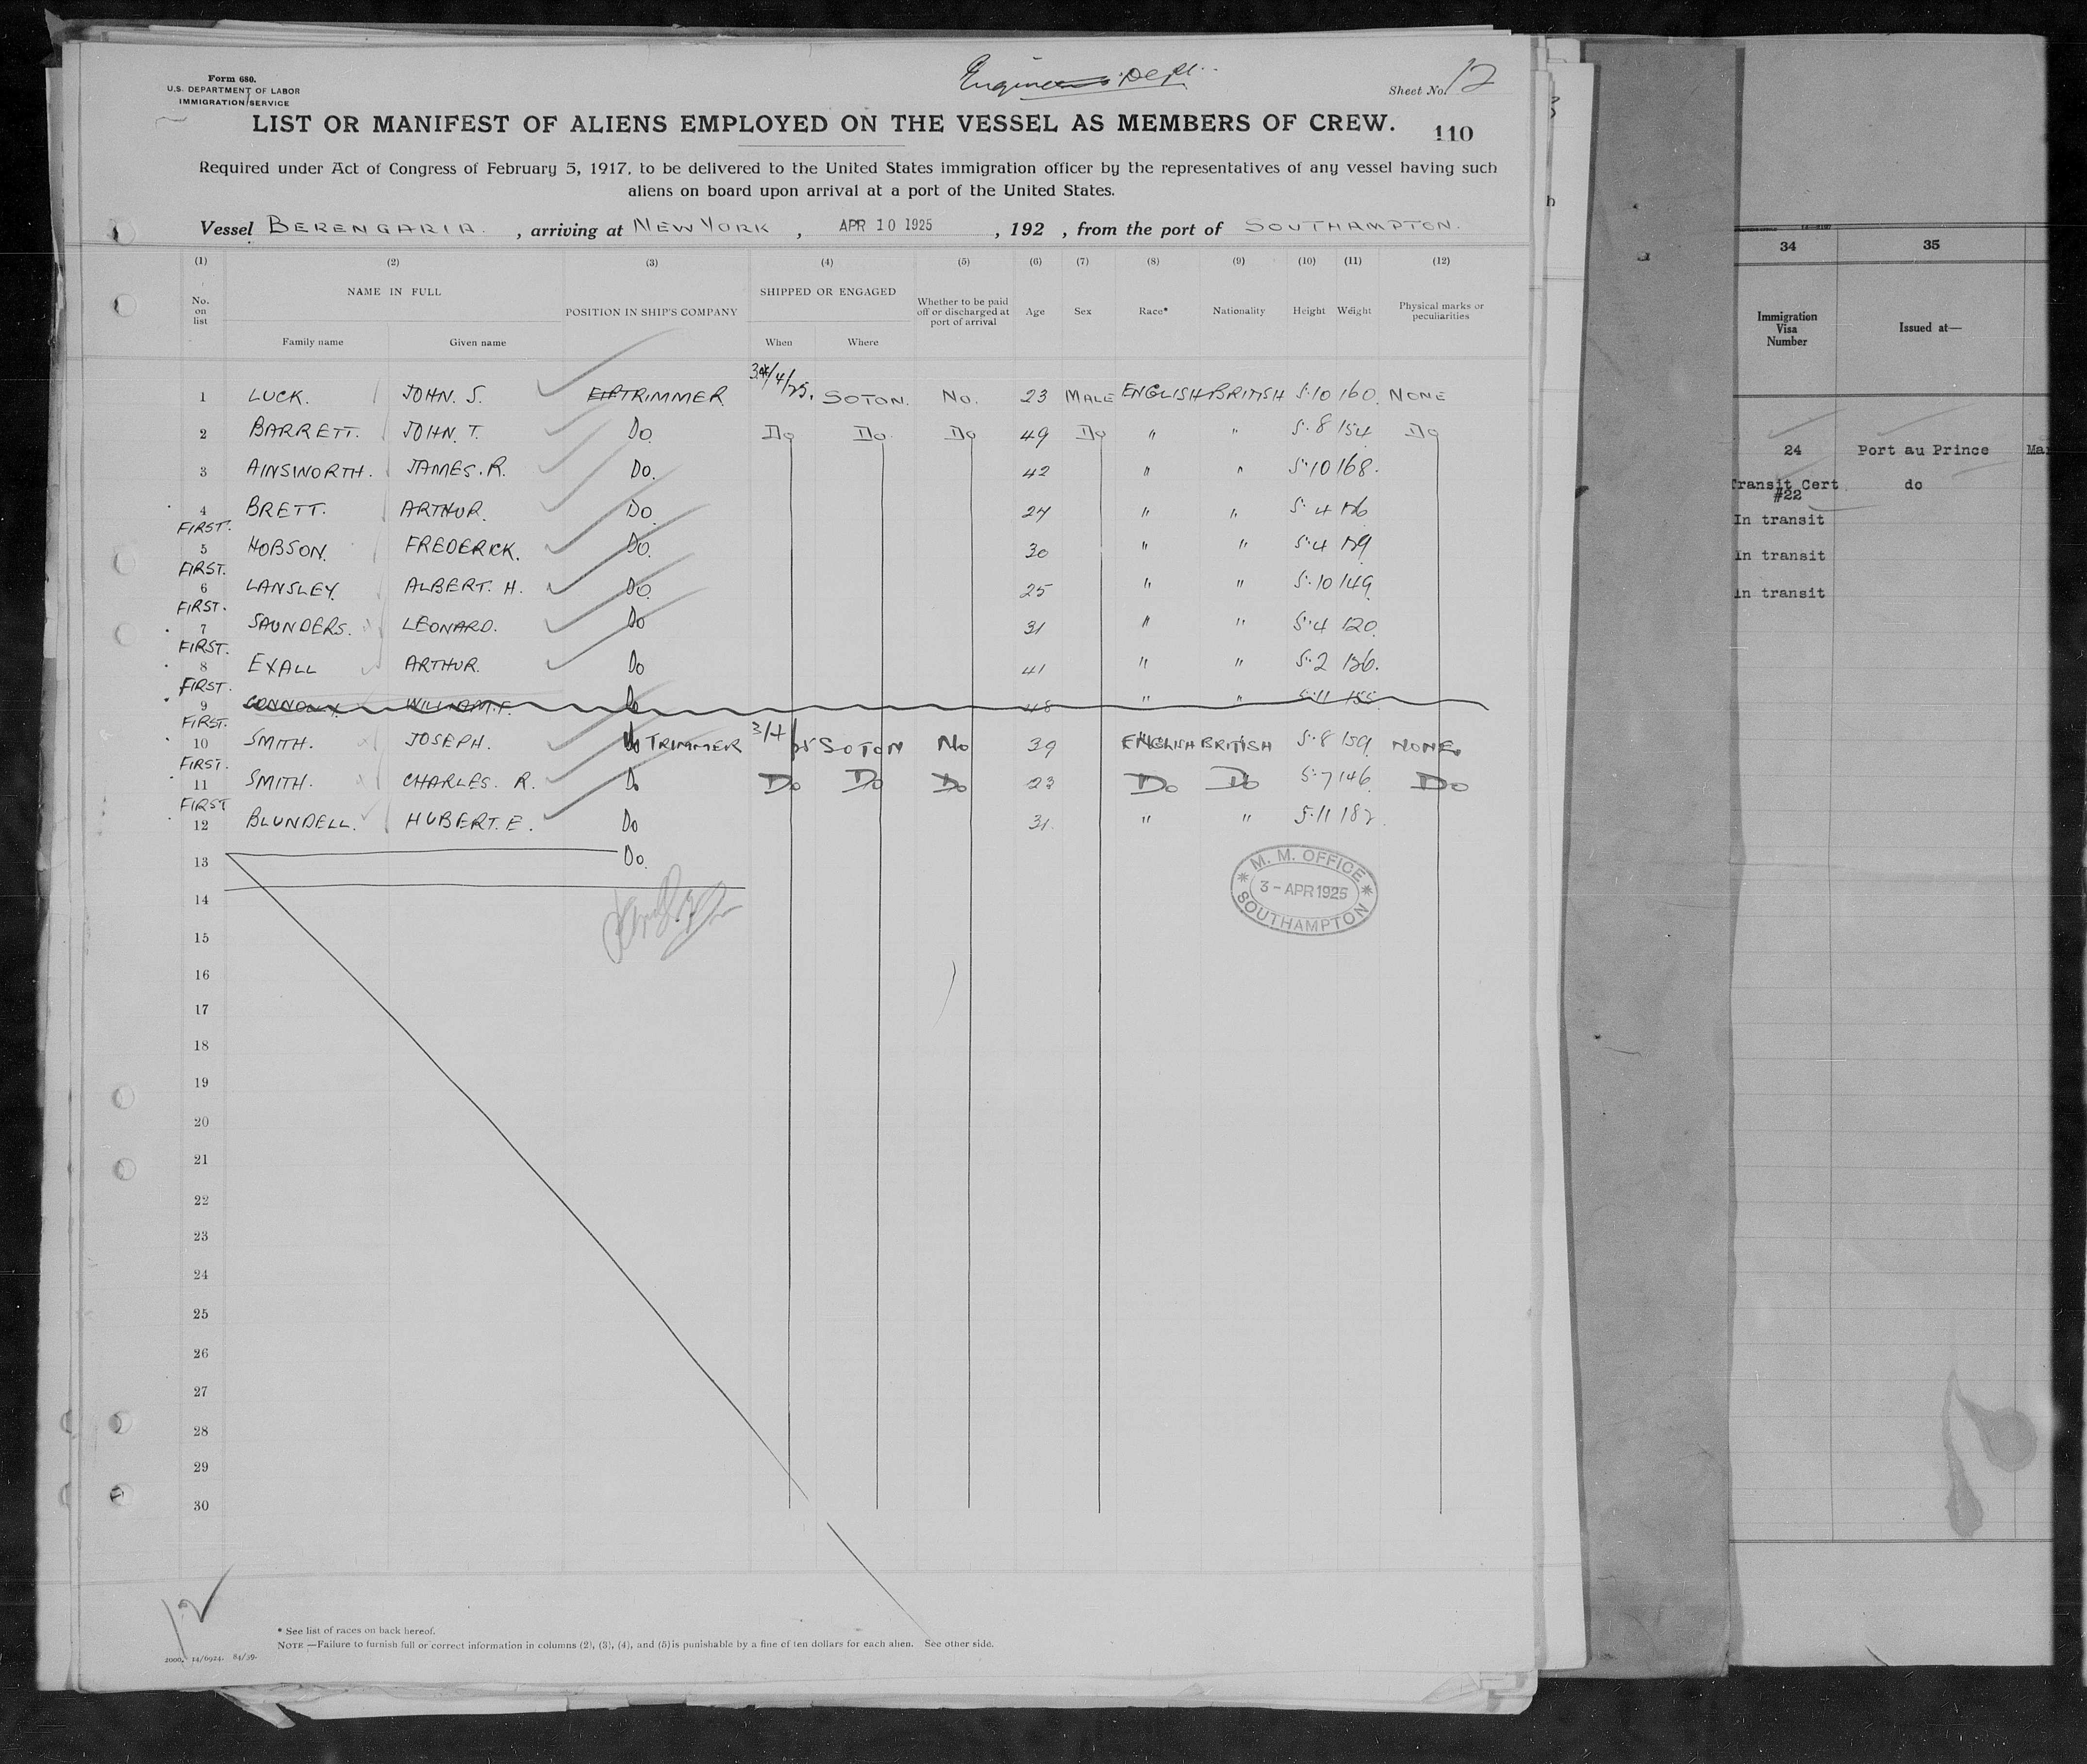 Form 680.
U.S. DEPARTMENT OF LABOR
IMMIGRATION SERVICE
Engineers Dept.
Sheet No. 12
LIST OR MANIFEST OF ALIENS EMPLOYED ON THE VESSEL AS MEMBERS OF CREW.
110
Required under Act of Congress of February 5, 1917, to be delivered to the United States immigration officer by the representatives of any vessel having such
aliens on board upon arrival at a port of the United States.
Vessel BERENGARIA. , arriving at NEW YORK , APR 10 1925 , 192 , from the port of SOUTHAMPTON.
(1) (2) (3) (4) (5) (6) (7) (8) (9) (10) (11) (12)
No. on list NAME IN FULL POSITION IN SHIP'S COMPANY SHIPPED OR ENGAGED Whether to be paid off or discharged at port of arrival Age Sex Race* Nationality Height Weight Physical marks or peculiarities
Family name Given name When Where
1 LUCK. JOHN. S. TRIMMER 3/4/25. SOTON. No. 23 MALE ENGLISH BRITISH 5.10 160 NONE
2 BARRETT. JOHN. T. Do. Do Do. Do 49 Do " " 5.8 154 Do
3 AINSWORTH. JAMES. R. Do. 42 " " 5.10 168.
4 BRETT. ARTHUR. Do. 24 " " 5.4
FIRST.
5 HOBSON. FREDERICK. Do. 30 " " 5.4
FIRST.
6 LANSLEY. ALBERT. H. Do. 25 " " 5.10 149
FIRST.
7 SAUNDERS. LEONARD. Do 31 " " 5.4 120.
FIRST.
8 EXALL ARTHUR. Do 41 " " 5.2 136.
FIRST.
9 CONNOLLY. WILLIAM. F. Do 48 " " 5.11 155
FIRST.
10 SMITH. JOSEPH. Do TRIMMER 3/4/25 SOTON No 39 ENGLISH BRITISH 5.8 159 NONE.
FIRST.
11 SMITH. CHARLES. R. Do Do Do Do 23 Do Do 5.7 146 Do
FIRST
12 BLUNDELL. HUBERT. E. Do 31. " " 5.11 182.
13 Do.
14
M. M. OFFICE
3 - APR 1925
SOUTHAMPTON
15
16
17
18
19
20
21
22
23
24
25
26
27
28
29
30
12
* See list of races on back hereof.
NOTE.—Failure to furnish full or correct information in columns (2), (3), (4), and (5) is punishable by a fine of ten dollars for each alien. See other side.
2000. 14/6924. 84/39.
34 35
Immigration Visa Number Issued at—
24 Port au Prince
Transit Cert #22 do
In transit
In transit
In transit